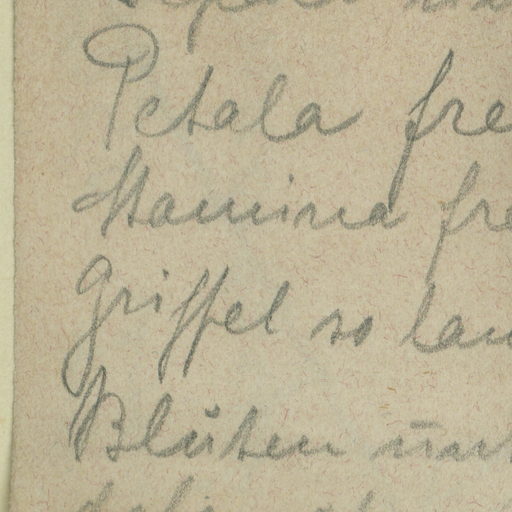 Petala fre
Stamina fre
Griffel so lan
Blüten